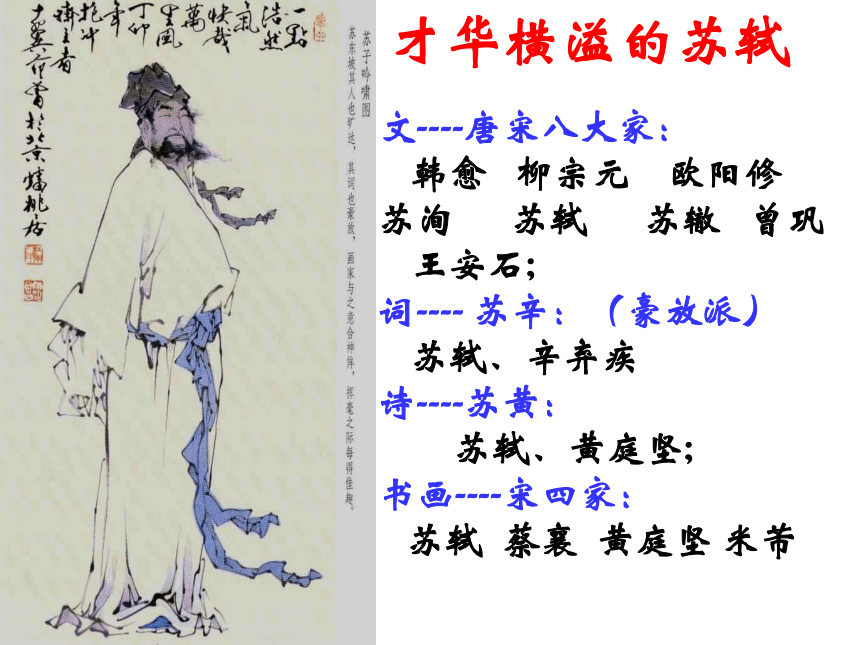 一點
浩然
氣
快哉
萬
里風
丁卯
年
抱冲
齋主者
十翼范曾於北京蟠桃居
苏子吟啸图
苏东坡其人也旷达，其词也豪放，画家与之意合神侔，挥毫之际每得佳趣。
才华横溢的苏轼
文----唐宋八大家：
韩愈 柳宗元 欧阳修
苏洵 苏轼 苏辙 曾巩
王安石；
词---- 苏辛：（豪放派）
苏轼、辛弃疾
诗----苏黄：
苏轼、黄庭坚；
书画----宋四家：
苏轼 蔡襄 黄庭坚 米芾